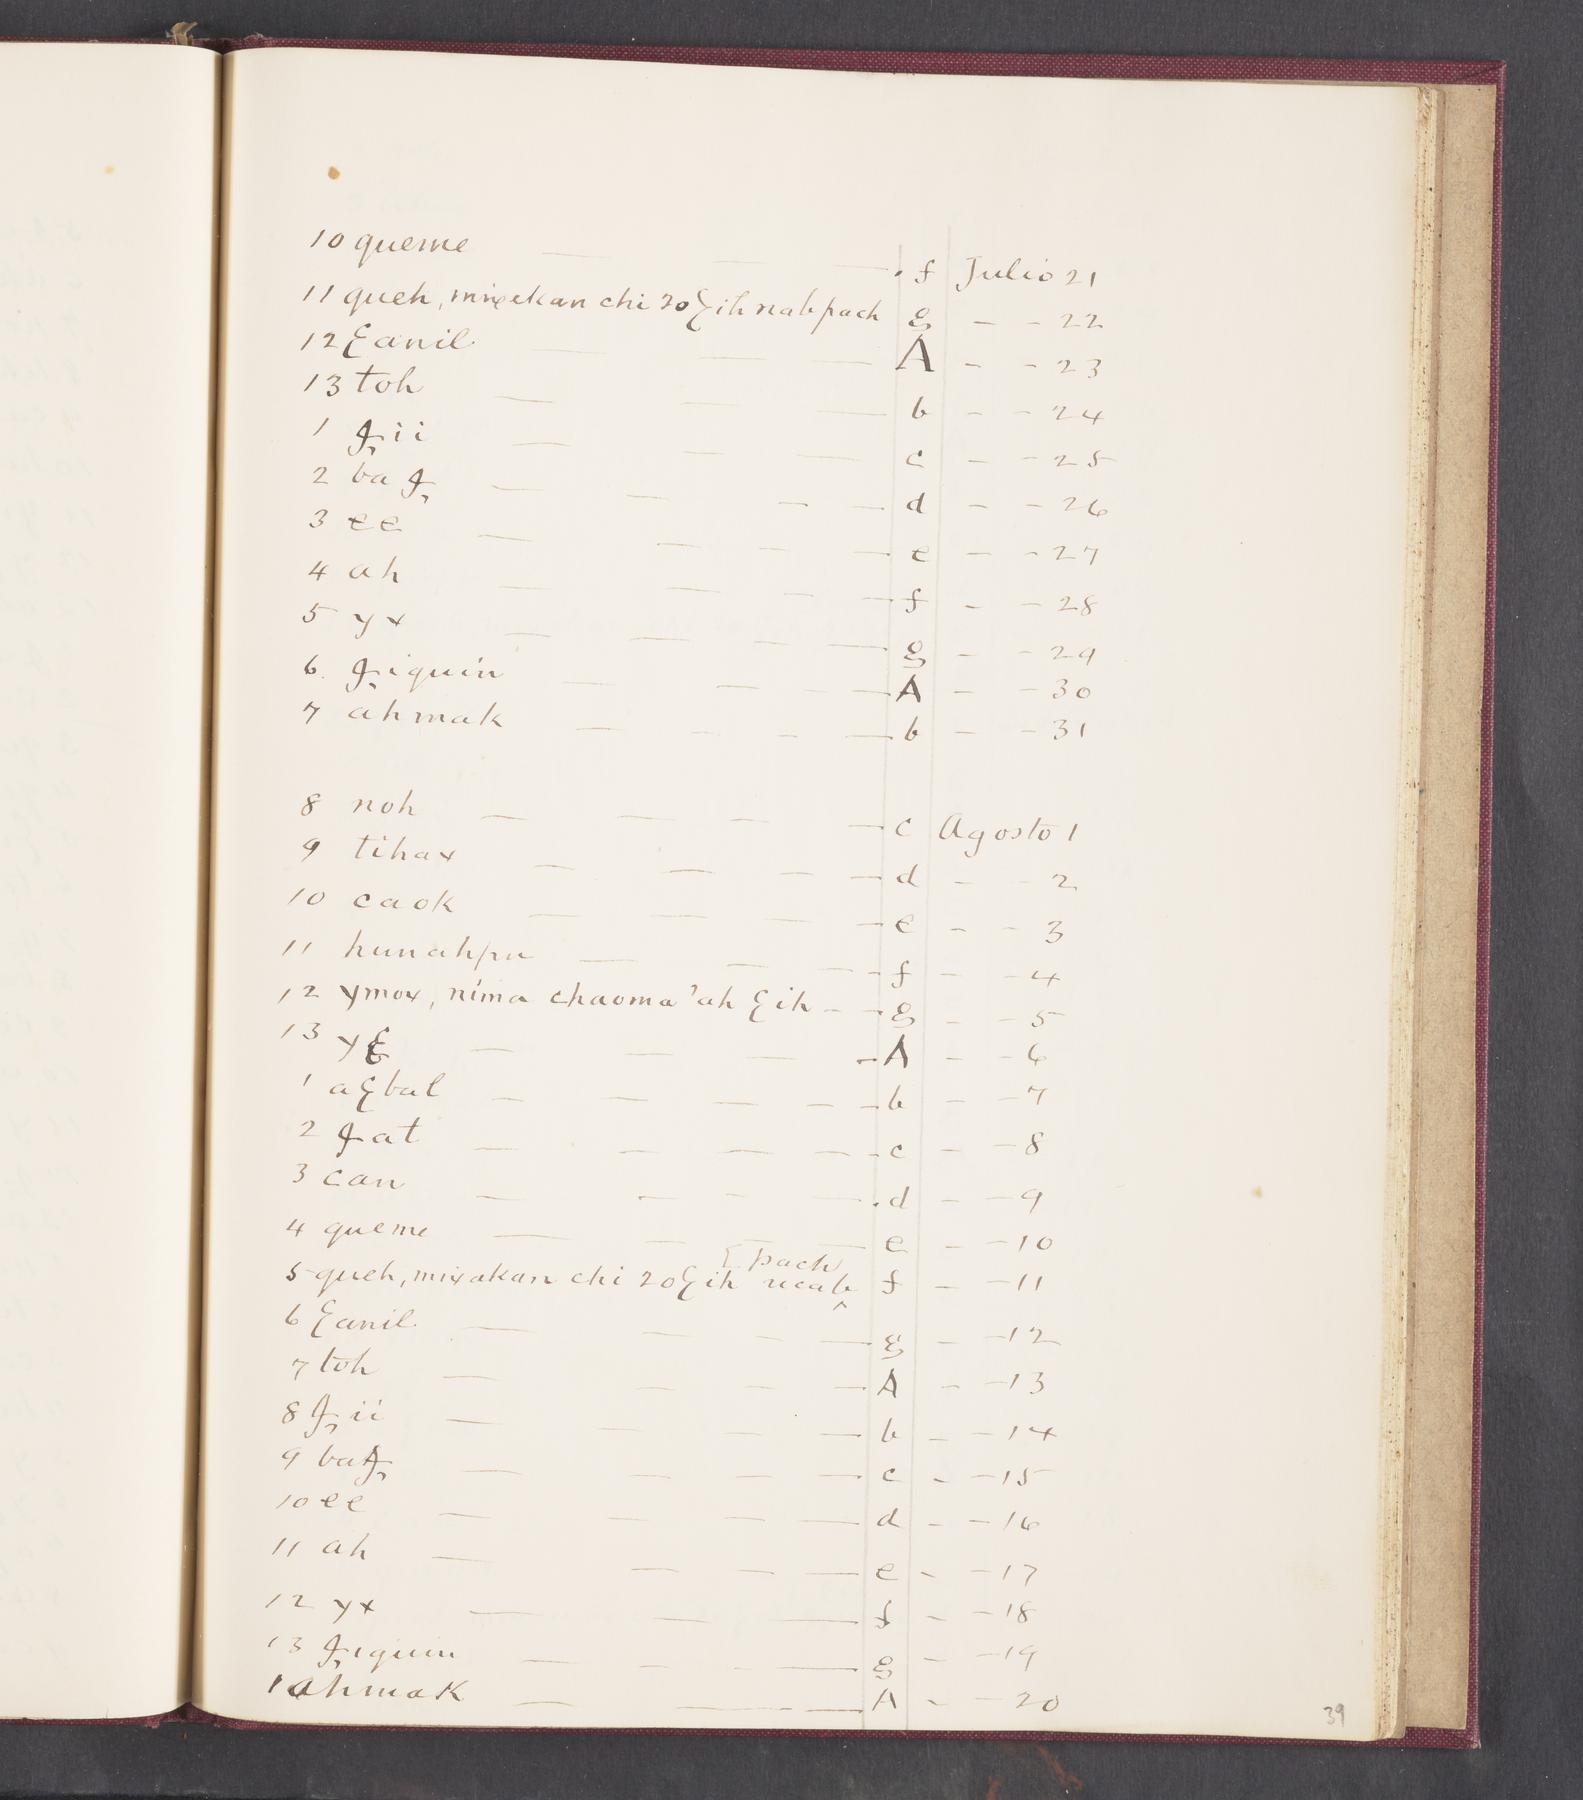 10 queme — — — . f Julio 21
11 queh, mixekan chi 20 ꜫih nabpach g - - 22
12 ꜫanil — — — A - - 23
13 toh — — — b - - 24
1 ꜯii — — — c - - 25
2 baꜯ — — — — d - - 26
3 ee — — — — e - - 27
4 ah — — — — f - - 28
5 yx — — — — g - - 29
6. ꜯiquin — — - — A - - 30
7 ahmak — - - — b - - 31
8 noh — — — — c Agosto 1
9 tihax — — — — d - - 2
10 caok — — — — e - - 3
11 hunahpu — — — - f - - 4
12 ymox, nima chaoma'ah ꜫih - - g - - 5
13 yꜫ — — — - A - - 6
1 aꜫbal — — — — - b - - 7
2 ꜭat — — — — - c - - 8
3 can — — - — . d - - 9
4 queme — — — — e - - 10
5 queh, mixakan chi 20 ꜫih ucab ꜫpach f - - 11
6 ꜫanil — — - — g - - 12
7 toh — — - — A - - 13
8 ꜯii — — - — b - - 14
9 baꜯ — — - — c - - 15
10 ee — — — — d - - 16
11 ah — — — — e - - 17
12 yx — — — f - - 18
13 ꜯiquin — - - — g - - 19
1 ahmak — — - — A - - 20
39